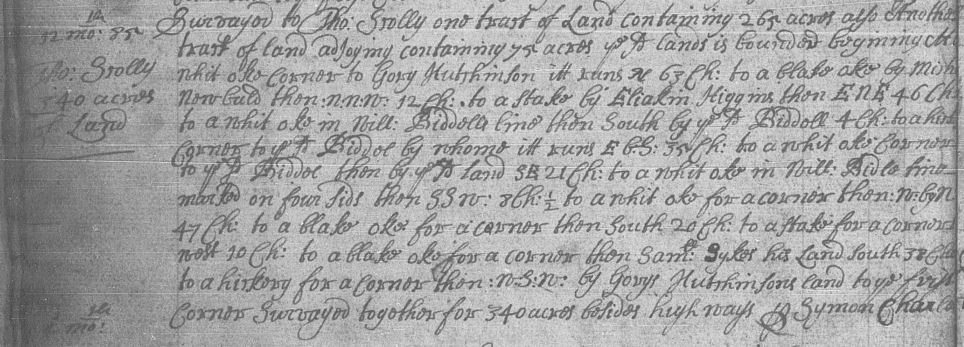 Survayed to Tho: Scolly one tract of Land containing 265 acres also Another
12 mo: 85
tract of land adjoyning containing 75 acres ye sd lands is bounded begining att a
Tho: Scolly
whit oke Corner to Gorg Hutchinson itt runs N 63 Ch: to a blake oke by Mich
340 acres
Newbuld then: n:n:w: 12 Ch: to a stake by Eliakin Higgins then E N E 46 Ch:
of Land
to a whit oke in Will: Biddells line then South by ye sd Biddell 4 Ch: to a
Corner to ye sd Biddol by whome itt runs E 35 Ch: to a whit oke Corner
to ye sd Biddol then by ye sd land SE 21 Ch: to a whit oke in Will: Bidls line
marked on four sids then S S w: 8 Ch: ½ to a whit oke for a corner then: w: by N
47 Ch: to a blake oke for a corner then South 20 Ch: to a stake for a corner
west 10 Ch: to a blake oke for a corner then Saml: Sykes his Land South 38 Ch:
to a hickery for a Corner then: w: S: w: by Gorgs Hutchinsons land to ye first
Corner Survayed together for 340 acres besides high ways p Symon Charls
mo: